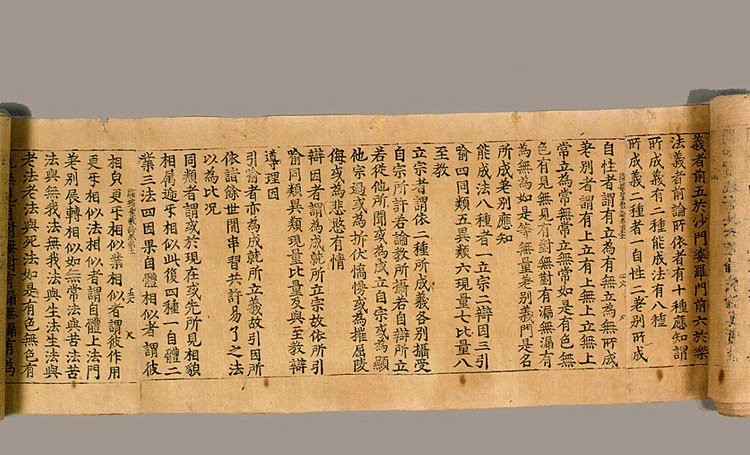 義者前五於沙門婆羅門前六於樂
法義者前論所依者有十種應知謂
所成義有二種能成法有八種
所成義二種者一自性二差別所成
自性者謂有立為有無立為無所成
差別者謂有上立有上無上立無上
常立為常無常立無常如是有色無
色有見無見有對無對有漏無漏有
為無為如是等無量差別義門是名
所成差別應知
能成法八種者一立宗二辯因三引
喻四同類五異類六現量七比量八
至教
立宗者謂依二種所成義各別攝受
自宗所許若論教所攝若自辯所立
若從他所聞或為成立自宗或為顯
他宗過或為折伏憍慢或為摧屈陵
侮或為悲愍有情
辯因者謂為成就所立宗故依所引
喻同類異類現量比量及與至教辯
導理因
引喻者亦為成就所立義故引因所
依諸餘世間串習共許易了之法
以為比況
同類者謂或於現在或先所見相貌
相屬遞互相似此復四種一自體二
業三法四因果自體相似者謂彼
相貟更互相似業相似者謂彼作用
更互相似法相似者謂自體上法門
差別展轉相似如無常法與苦法苦
法與無我法無我法與生法生法與
老法老法與死法如是有色無色有